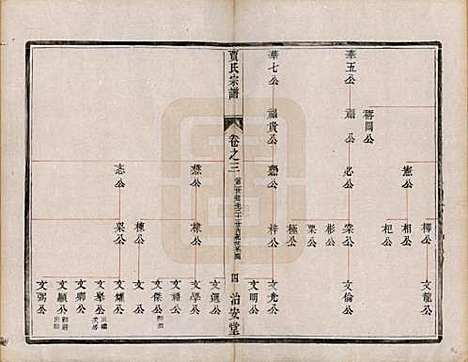 華五公
福公
禧同公
必公
憲公
榮公
彬公
果公
極公
杞公
相公
文倫公
文龍公
華七公
福貴公
梓公
文光公
文明公
賈氏宗譜
卷之三
四
治安堂
懋公
志公
棣公
棟公
梁公
文選公
文學公
文禧公
文傑公
文燿公
文舉公
文卿公
文顯公
文弼公